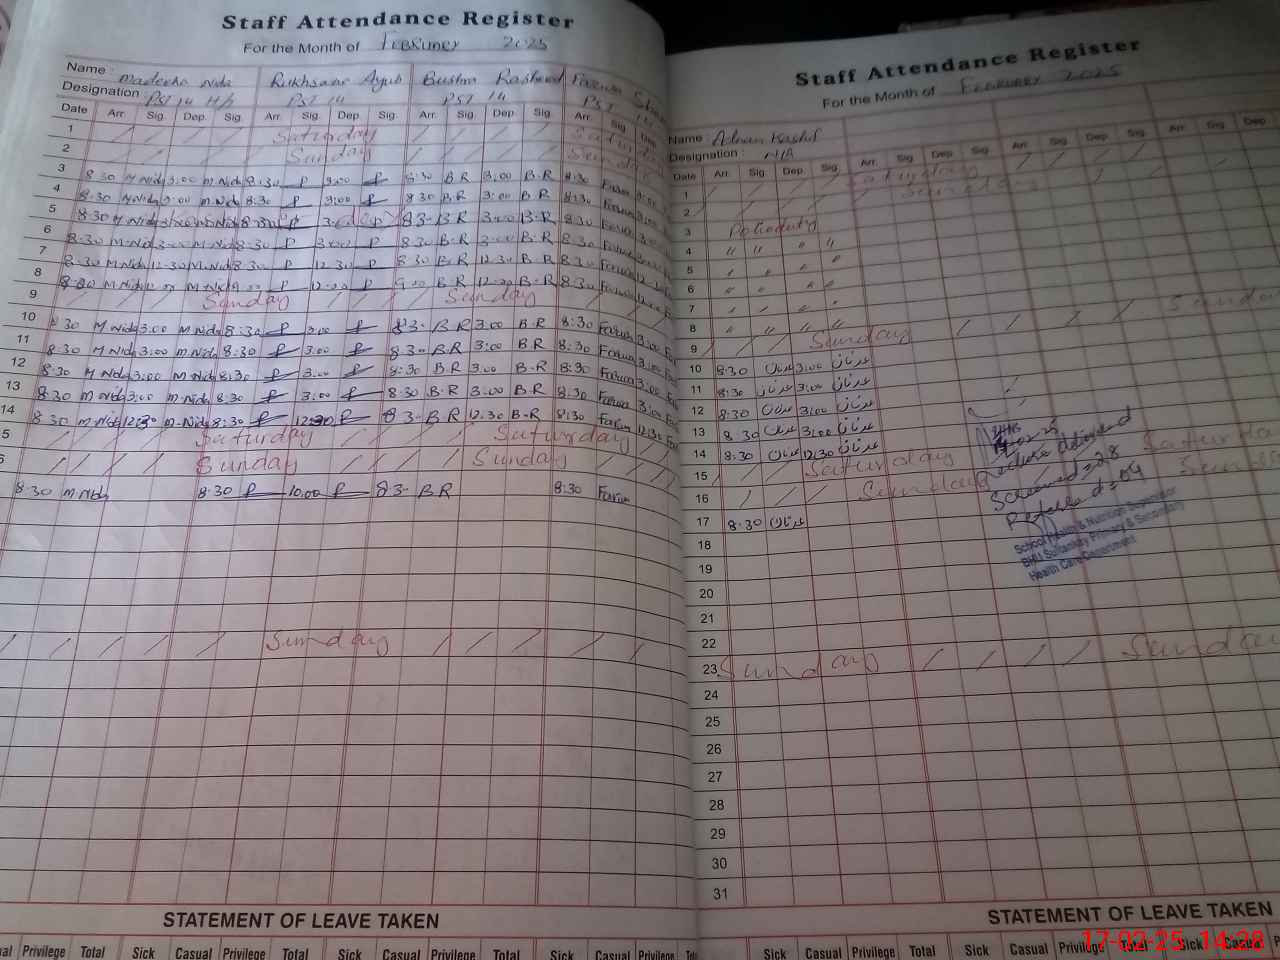 Staff Attendance Register
For the Month of February 2025
Name: Madeeha Nida Rukhsaar Ayub Bushra Rasheed
Designation: PST 14 H/S PST 14 PST 14 PST
Date Arr. Sig. Dep. Sig. Arr. Sig. Dep. Sig. Arr. Sig. Dep. Sig. Arr. Sig. Dep
1 Saturday
2 Sunday
3 8:30 M.Nida 3:00 M.Nida 8:30 3:00 8:30 B.R 3:00 B.R 8:30
4 8:30 M.Nida 3:00 M.Nida 8:30 3:00 8:30 B.R 3:00 B.R 8:30
5 8:30 M.Nida 3:00 M.Nida 8:30 83- B.R 3:00 B.R 8:30
6 8:30 M.Nida 3:00 M.Nida 8:30 3:00 8:30 B.R 3:00 B.R 8:30
7 8:30 M.Nida 12:30 M.Nida 8:30 12:30 8:30 B.R 12:30 B.R 8:30
8 M.Nida M.Nida B.R B.R 8:30
9 Sunday Sunday
10 8:30 M.Nida 3:00 M.Nida 8:30 3:00 83- B.R 3:00 B.R 8:30
11 8:30 M.Nida 3:00 M.Nida 8:30 3:00 8:30 B.R 3:00 B.R 8:30
12 8:30 M.Nida 3:00 M.Nida 8:30 3:00 8:30 B.R 3:00 B.R 8:30
13 8:30 M.Nida 3:00 M.Nida 8:30 3:00 8:30 B.R 3:00 B.R 8:30
14 8:30 M.Nida 12:30 M.Nida 8:30 12:30 83- B.R 12:30 B.R 8:30
5 Saturday Saturday
Sunday Sunday
8:30 M.Nida 8:30 10:00 83- B.R 8:30
Sunday
STATEMENT OF LEAVE TAKEN
Privilege Total Sick Casual Privilege Total Sick Casual Privilege Total Sick Casual Privilege
Staff Attendance Register
For the Month of February 2025
Name: Adnan Kashif
Designation: N/A
Date Arr. Sig. Dep. Sig. Arr. Sig. Dep. Sig. Arr. Sig. Dep. Sig. Arr. Sig. Dep
1 Saturday
2 Sunday
3 Polioduty
4 " " " "
5 " " " "
6 " " " "
7 " " " "
8 " " " "
9 Sunday
10 8:30 عدنان 3:00 عدنان
11 8:30 عدنان 3:00 عدنان
12 8:30 عدنان 3:00 عدنان
13 8:30 عدنان 3:00 عدنان
14 8:30 عدنان 12:30 عدنان
15 Saturday Saturday
16 Sunday
17 8:30 عدنان
18
19
20
21
22
23 Sunday
24
25
26
27
28
29
30
31
Screened = 28
School Health & Nutrition Supervisor
Primary & Secondary
Health Care Department
STATEMENT OF LEAVE TAKEN
Sick Casual Privilege Total Sick Casual Privilege Total Sick Casual
17-02-25 14:28